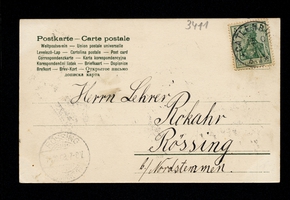 3441
Postkarte – Carte postale
Weltpostverein – Union postale universelle
Levelező-Lap – Cartolina postale – Post card
Correspondenzkarte – Karta korespondencyjna
Korespondenční lístek – Briefkaart – Dopisnice
Brefkort – Brev-Kort – Открытое письмо
Herrn Lehrer
Rokahr
Rössing
b/ Nordstemmen.